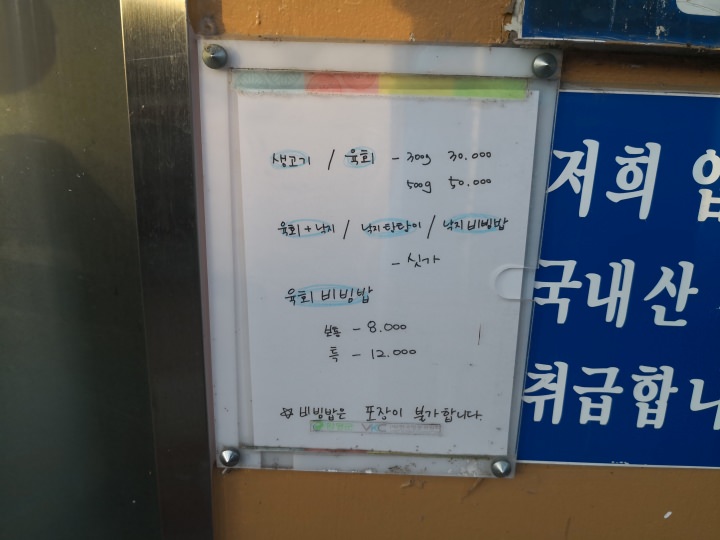 생고기 / 육회 - 300g 30.000
500g 50.000
육회 + 낙지 / 낙지탕탕이 / 낙지비빔밥
- 싯가
육회비빔밥
보통 - 8.000
특 - 12.000
※ 비빔밥은 포장이 불가합니다.
VMC
저희 업
국내산
취급합니